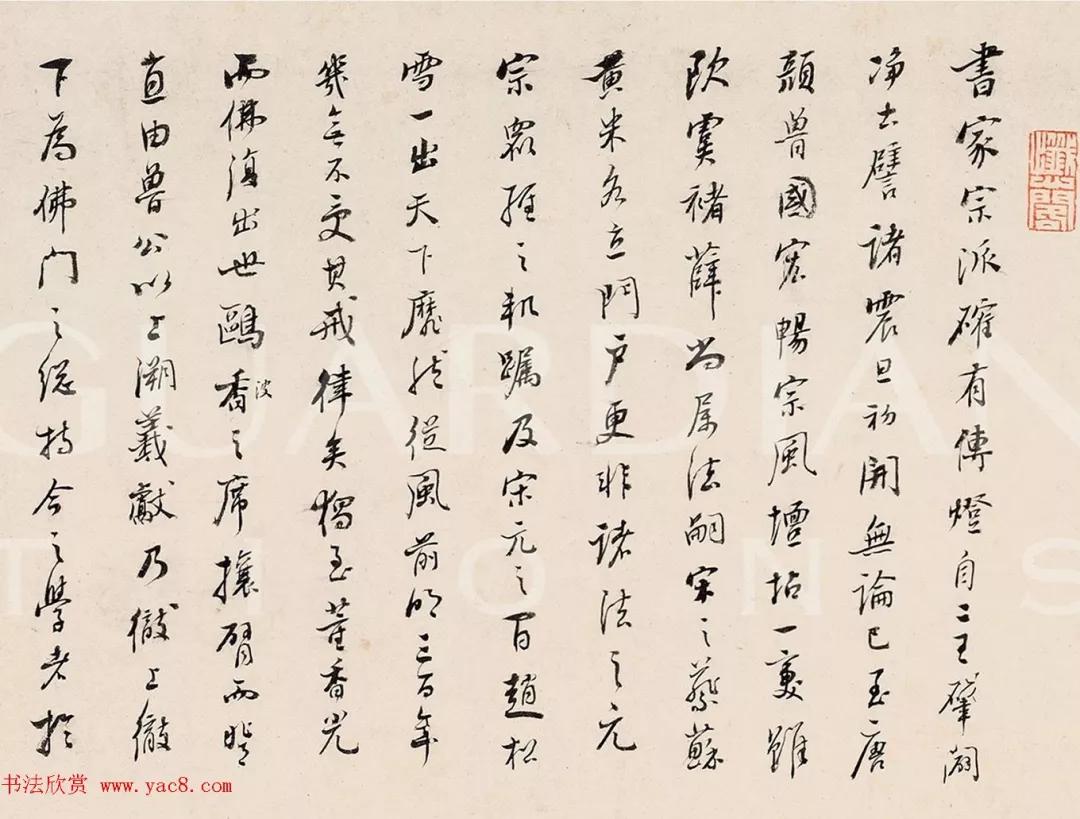 書家宗派確有傳燈自二王肇闢
淨土譬諸震旦初開無論已至唐
顏魯國宏暢宗風壇坫一變雖
歐虞褚薛尚屬法嗣宋之蔡蘇
黃米各立門戶更非諸法之元
宗羅之軌躅及宋元之間趙松
雪一出天下靡然從風前明三百年
幾無不受其戒律矣獨至董香光
而佛復出世鷗波香之席攘臂而登
直由魯公以上溯羲獻乃徹上徹
下為佛門之總持今之學者於
GUARDIAN
TIONS
书法欣赏 www.yac8.com